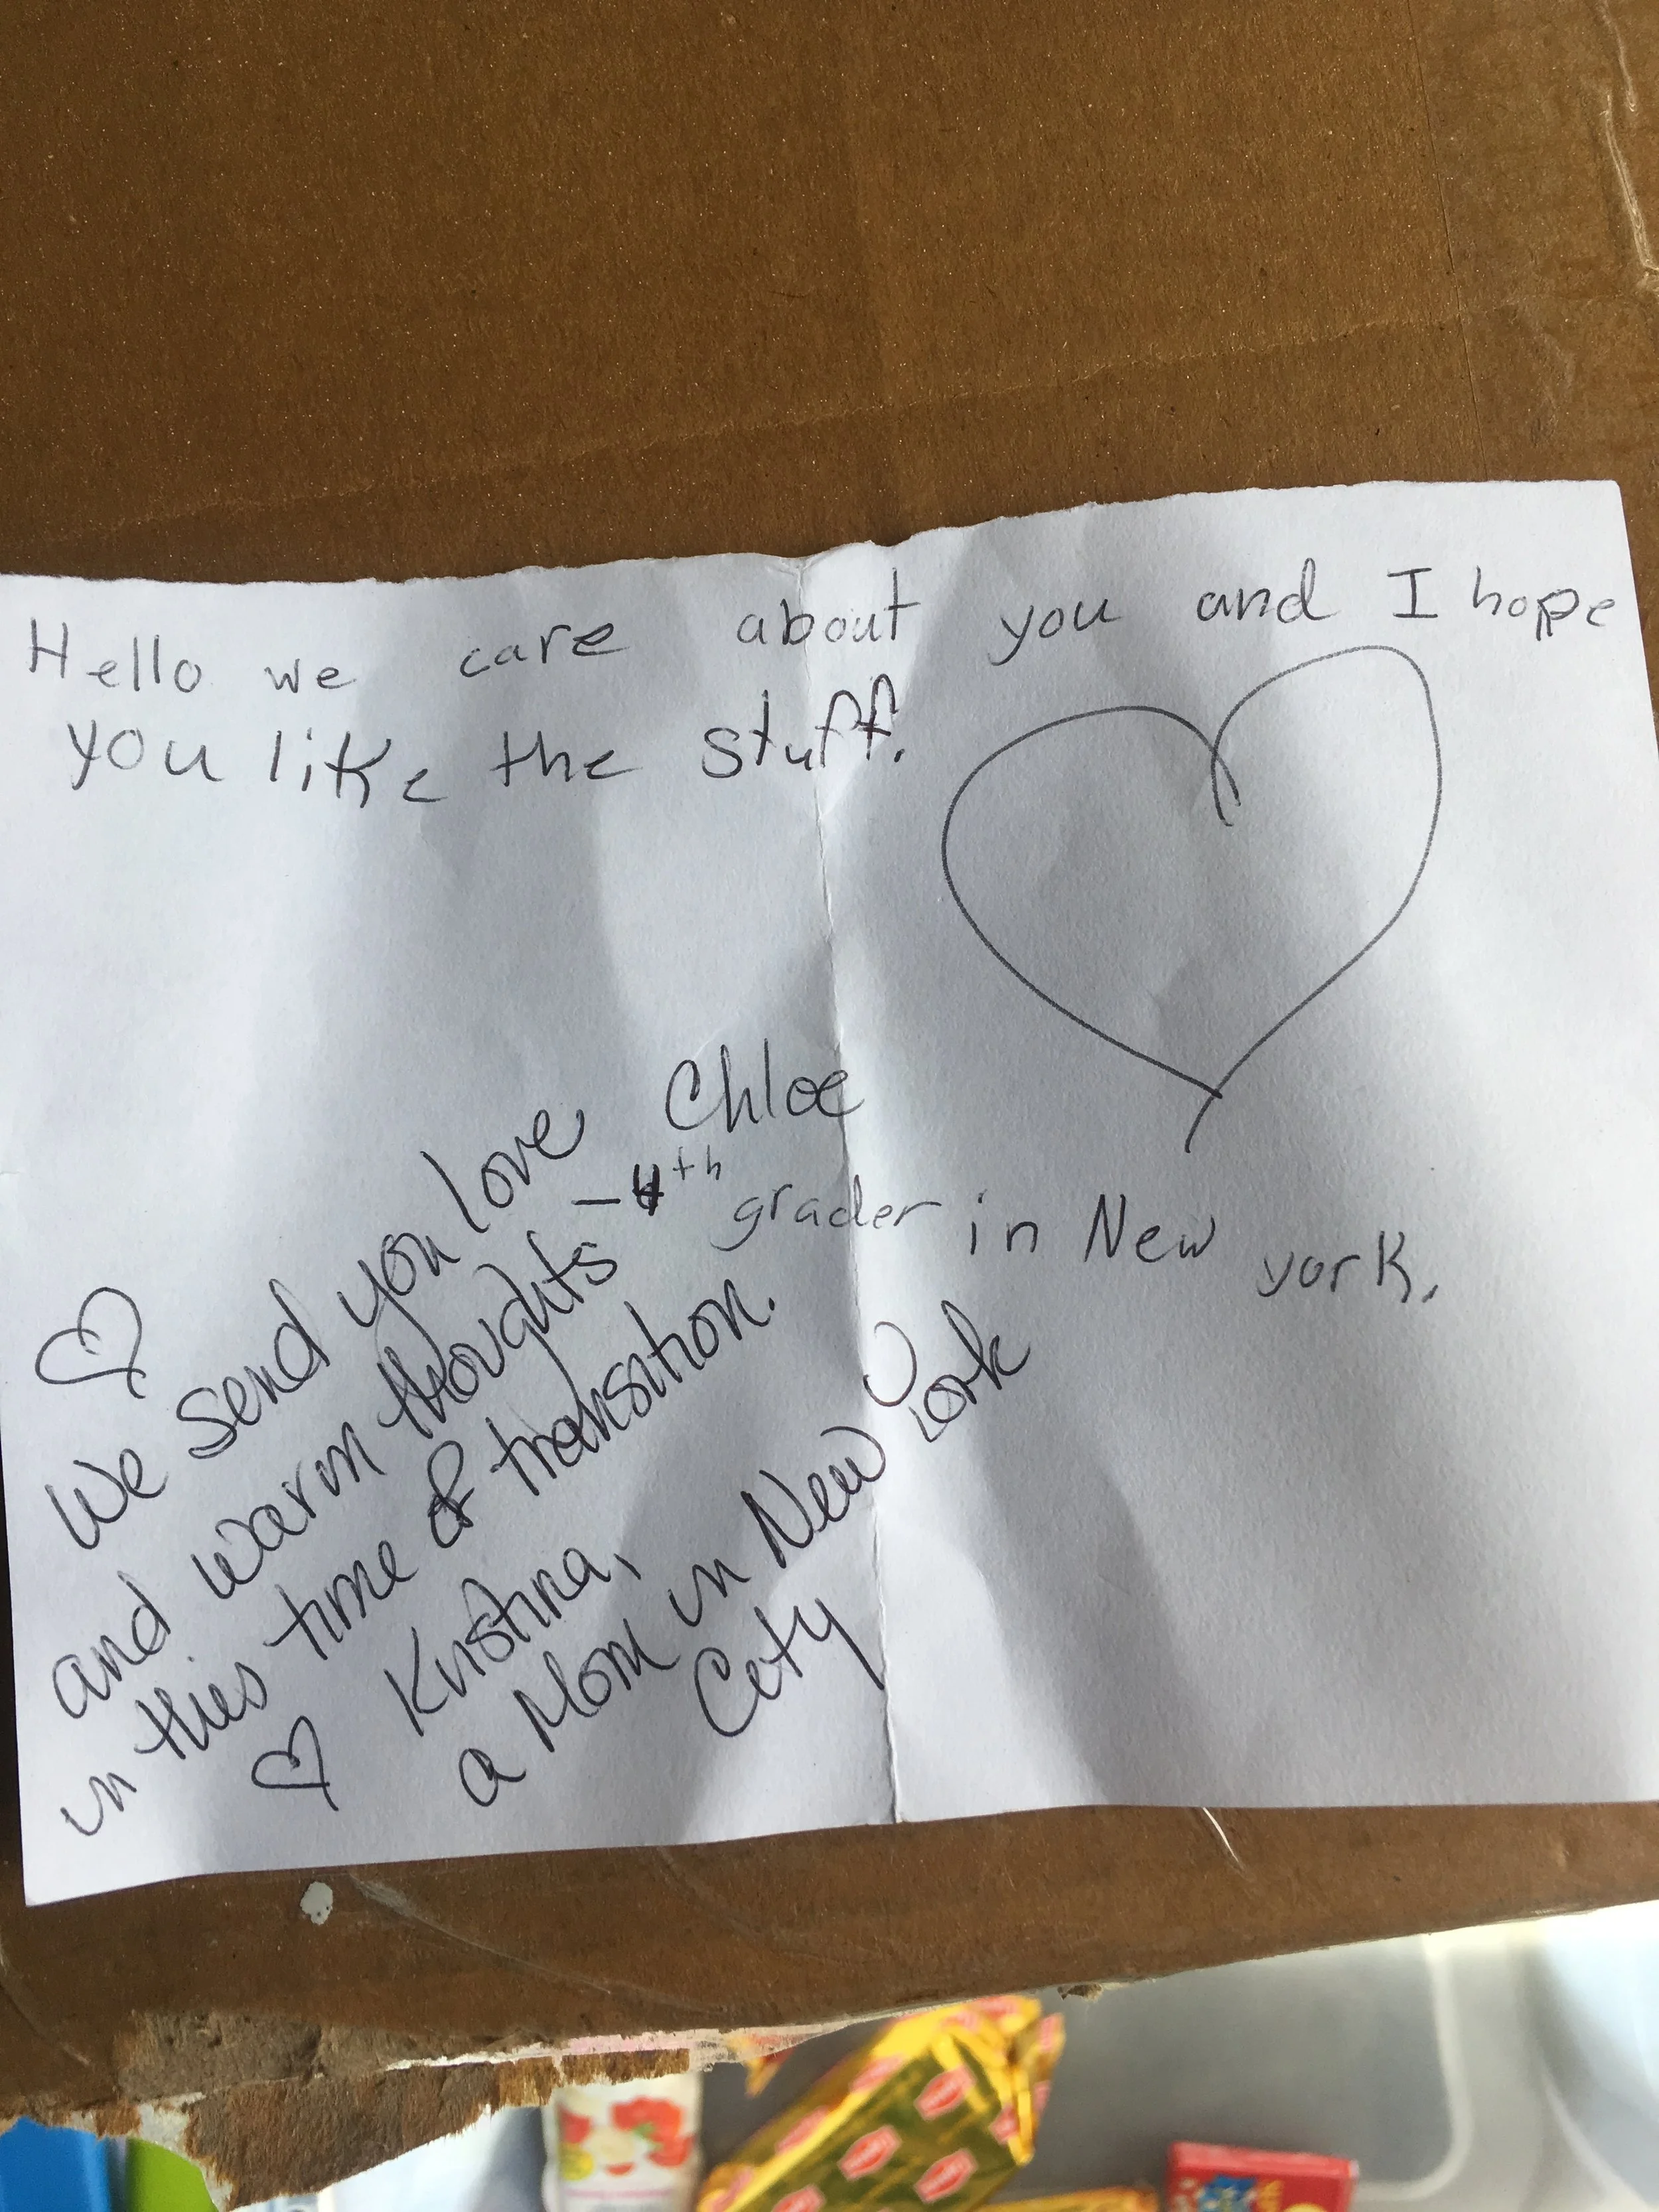 Hello we care about you and I hope
you like the stuff.
Chloe
-4th grader in New york.
We send you love
and warm thoughts
in this time of transition.
Kristina,
a Mom in New York
City